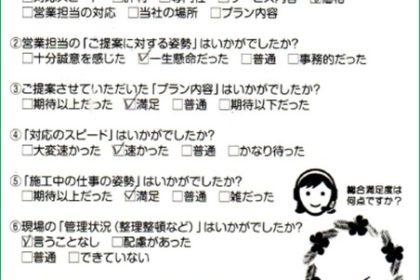 □営業担当の対応 □当社の場所 □プラン内容
②営業担当の「ご提案に対する姿勢」はいかがでしたか?
□十分誠意を感じた ☑一生懸命だった □普通 □事務的だった
③ご提案させていただいた「プラン内容」はいかがでしたか?
□期待以上だった ☑満足 □普通 □期待以下だった
④「対応のスピード」はいかがでしたか?
□大変速かった ☑速かった □普通 □かなり待った
⑤「施工中の仕事の姿勢」はいかがでしたか?
□期待以上だった ☑満足 □普通 □雑だった
総合満足度は
何点ですか?
⑥現場の「管理状況(整理整頓など)」はいかがでしたか?
☑言うことなし □配慮があった
□普通 □できていない